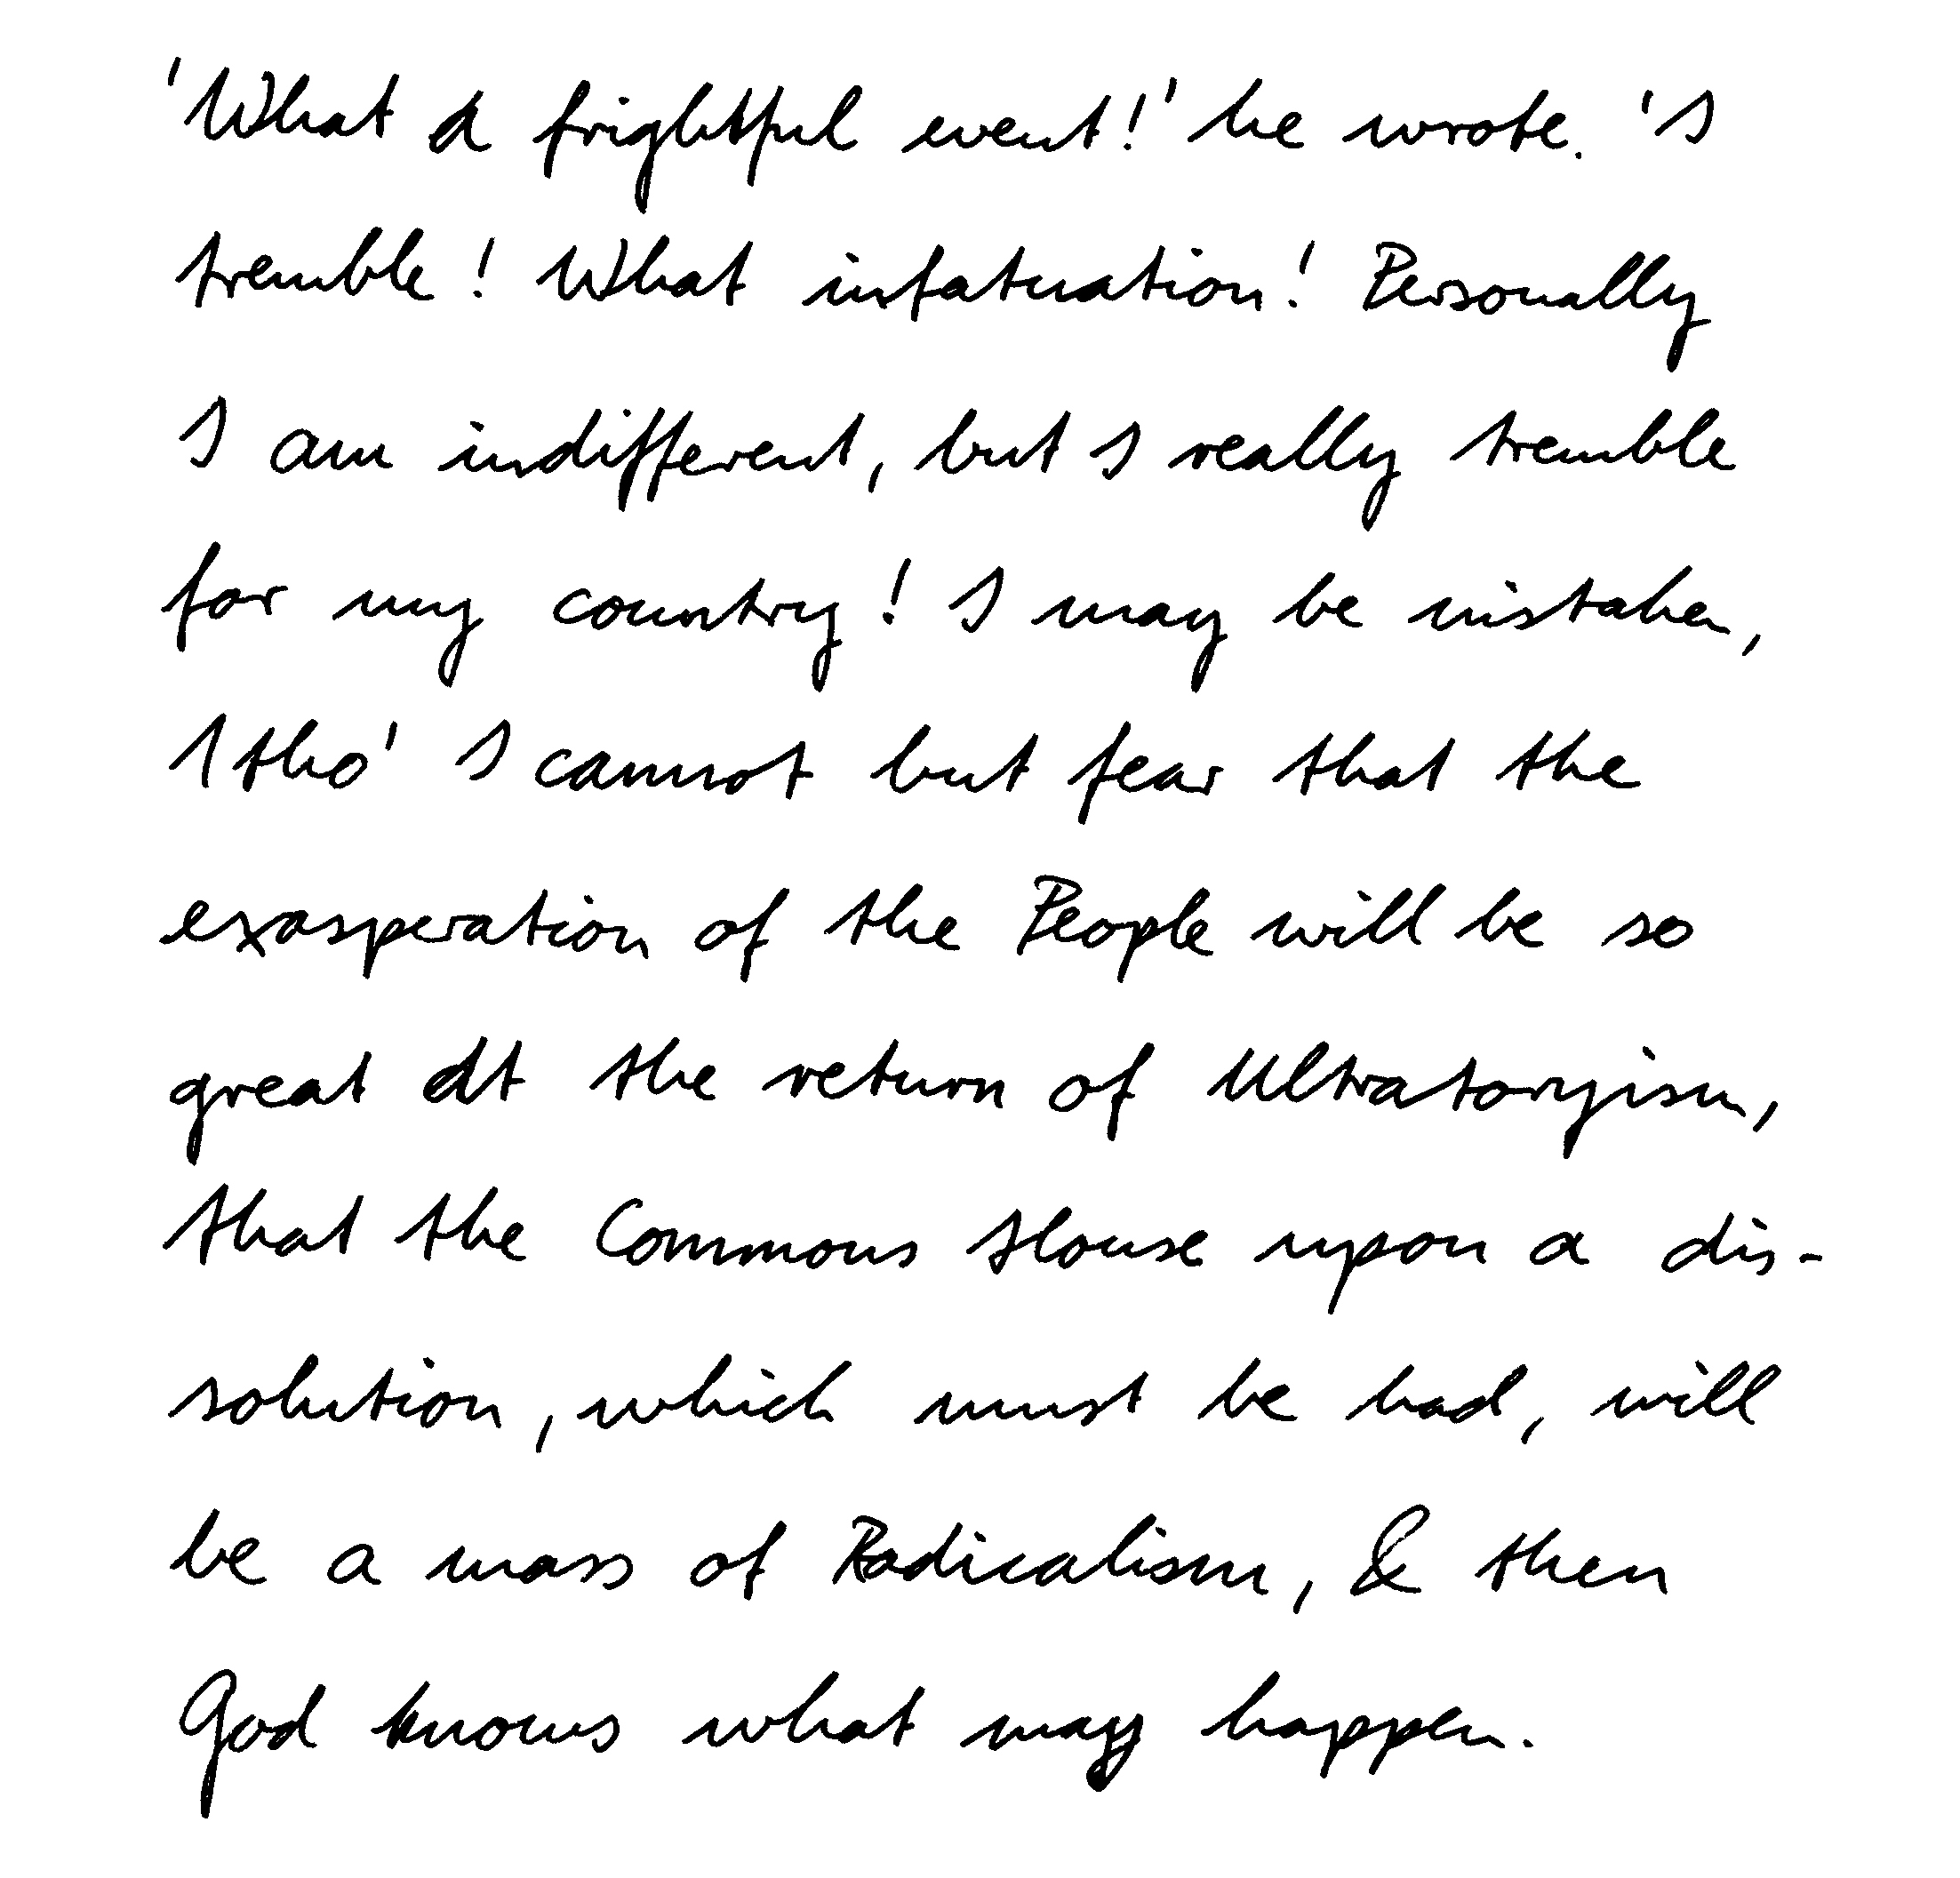 'What a frightful event!' he wrote. 'I
tremble! What infatuation! Personally
I am indifferent, but I really tremble
for my country! I may be mistaken,
1 tho' I cannot but fear that the
exasperation of the People will be so
great at the return of Ultratoryism,
that the Commons House upon a dis-
solution, which must be had, will
be a mass of Radicalism, & then
God knows what may happen.